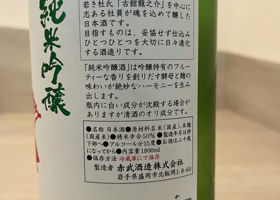 純米吟醸
若き杜氏「古舘龍之介」を中心に
志ある社員が魂を込めて醸した
日本酒です。
目指すものは、妥協せず仕込み
ひとつひとつを大切に日々進化
する酒造りです。
「純米吟醸酒」は吟醸特有のフルー
ティーな香りを創りだす酵母と麹の
味わが絶妙なハーモニーを生み
出します。
瓶内に白い成分が沈殿する場合が
ありますが清酒のオリ成分です。
●名称 日本酒●原材料名 米(国産)、米麹
(国産)●精米歩合50%
●アルコール分15度
になってから●内容量1800ml
●保存方法 冷蔵庫にて保存
製造者 赤武酒造株式会社
岩手県盛岡市北飯岡1-8-60